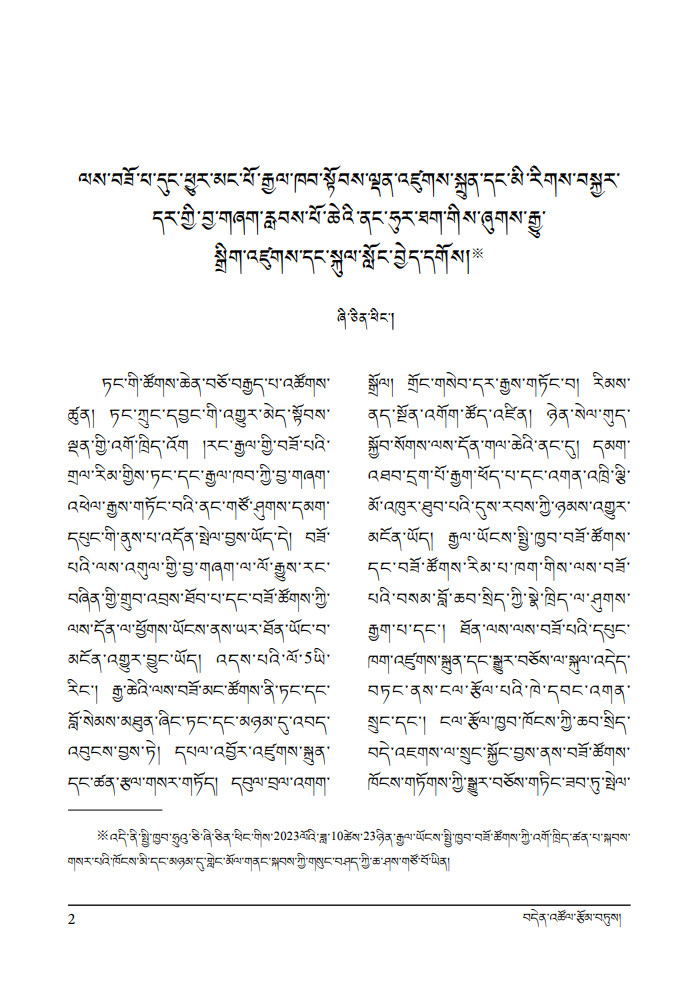 ལས་བཟོ་པ་དུང་ཕྱུར་མང་པོ་རྒྱལ་ཁབ་སྟོབས་ལྡན་འཛུགས་སྐྲུན་དང་མི་རིགས་བསྐྱར་
དར་གྱི་བྱ་གཞག་རླབས་པོ་ཆེའི་ནང་ཧུར་ཐག་གིས་ཞུགས་རྒྱུ་
སྒྲིག་འཛུགས་དང་སྐུལ་སློང་བྱེད་དགོས།※
ཞི་ཅིན་ཕིང་།
ཏང་གི་ཚོགས་ཆེན་བཅོ་བརྒྱད་པ་འཚོགས་
ཚུན། ཏང་ཀྲུང་དབྱང་གི་འགྱུར་མེད་སྟོབས་
ལྡན་གྱི་འགོ་ཁྲིད་འོག །རང་རྒྱལ་གྱི་བཟོ་པའི་
གྲལ་རིམ་གྱིས་ཏང་དང་རྒྱལ་ཁབ་ཀྱི་བྱ་གཞག་
འཕེལ་རྒྱས་གཏོང་བའི་ནང་གཙོ་ཤུགས་དམག་
དཔུང་གི་ནུས་པ་འདོན་སྤེལ་བྱས་ཡོད་དེ། བཟོ་
པའི་ལས་འགུལ་གྱི་བྱ་གཞག་ལ་ལོ་རྒྱུས་རང་
བཞིན་གྱི་གྲུབ་འབྲས་ཐོབ་པ་དང་བཟོ་ཚོགས་ཀྱི་
ལས་དོན་ལ་ཕྱོགས་ཡོངས་ནས་ཡར་ཐོན་ཡོང་བ་
མངོན་འགྱུར་བྱུང་ཡོད། འདས་པའི་ལོ་5ཡི་
རིང་། རྒྱ་ཆེའི་ལས་བཟོ་མང་ཚོགས་ནི་ཏང་དང་
བློ་སེམས་མཐུན་ཞིང་ཏང་དང་མཉམ་དུ་འབད་
འབུངས་བྱས་ཏེ། དཔལ་འབྱོར་འཛུགས་སྐྲུན་
དང་ཚན་རྩལ་གསར་གཏོད། དབུལ་བྲལ་འགག་
སྒྲོལ། གྲོང་གསེབ་དར་རྒྱས་གཏོང་བ། རིམས་
ནད་སྔོན་འགོག་ཚོད་འཛིན། ཉེན་སེལ་གུད་
སྐྱོབ་སོགས་ལས་དོན་གལ་ཆེའི་ནང་དུ། དམག་
འཐབ་དྲག་པོ་རྒྱག་ཕོད་པ་དང་འགན་འཁྲི་ལྕི་
མོ་འཁུར་ཐུབ་པའི་དུས་རབས་ཀྱི་ཉམས་འགྱུར་
མངོན་ཡོད། རྒྱལ་ཡོངས་སྤྱི་ཁྱབ་བཟོ་ཚོགས་
དང་བཟོ་ཚོགས་རིམ་པ་ཁག་གིས་ལས་བཟོ་
པའི་བསམ་བློ་ཆབ་སྲིད་ཀྱི་སྣེ་ཁྲིད་ལ་ཤུགས་
རྒྱག་པ་དང་། ཐོན་ལས་ལས་བཟོ་པའི་དཔུང་
ཁག་འཛུགས་སྐྲུན་དང་སྒྱུར་བཅོས་ལ་སྐུལ་འདེད་
བཏང་ནས་ངལ་རྩོལ་པའི་ཁེ་དབང་འགན་
སྲུང་དང་། ངལ་རྩོལ་ཁྱབ་ཁོངས་ཀྱི་ཆབ་སྲིད་
བདེ་འཇགས་ལ་སྲུང་སྐྱོང་བྱས་ནས་བཟོ་ཚོགས་
ཁོངས་གཏོགས་ཀྱི་སྒྱུར་བཅོས་གཏིང་ཟབ་ཏུ་སྤེལ་
※འདི་ནི་སྤྱི་ཁྱབ་ཧྲུའུ་ཅི་ཞི་ཅིན་ཕིང་གིས་2023ལོའི་ཟླ་10ཚེས་23ཉིན་རྒྱལ་ཡོངས་སྤྱི་ཁྱབ་བཟོ་ཚོགས་ཀྱི་འགོ་ཁྲིད་ཚན་པ་སྐབས་
གསར་པའི་ཁོངས་མི་དང་མཉམ་དུ་གླེང་མོལ་གནང་སྐབས་ཀྱི་གསུང་བཤད་ཀྱི་ཆ་ཤས་གཙོ་བོ་ཡིན།
2 བདེན་འཚོལ་རྩོམ་བཏུས།